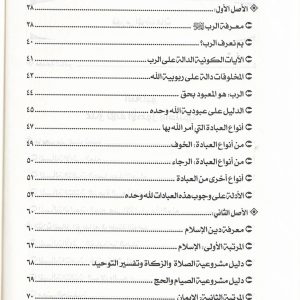 ◈ الأصل الأول: ........ ٣٨
معرفة الرب ﷻ ........ ٣٨
بم نعرف الرب؟ ........ ٤٠
الآيات الكونية الدالة على الرب ........ ٤١
المخلوقات دالة على ربوبية الله. ........ ٤٢
الرب: هو المعبود بحق ........ ٤٤
الدليل على عبودية الله وحده ........ ٤٥
أنواع العبادة التي أمر الله بها ........ ٤٧
من أنواع العبادة: الخوف ........ ٤٩
من أنواع العبادة: الرجاء ........ ٥٠
أنواع أخرى من العبادة ........ ٥١
الأدلة على وجوب هذه العبادات لله وحده ........ ٥٣
◈ الأصل الثاني: ........ ٦٠
معرفة دين الإسلام ........ ٦٠
المرتبة الأولى: الإسلام ........ ٦٢
دليل مشروعية الصلاة والزكاة وتفسير التوحيد ........ ٦٨
دليل مشروعية الصيام والحج ........ ٦٩
المرتبة الثانية: الإيمان ........ ٧٠